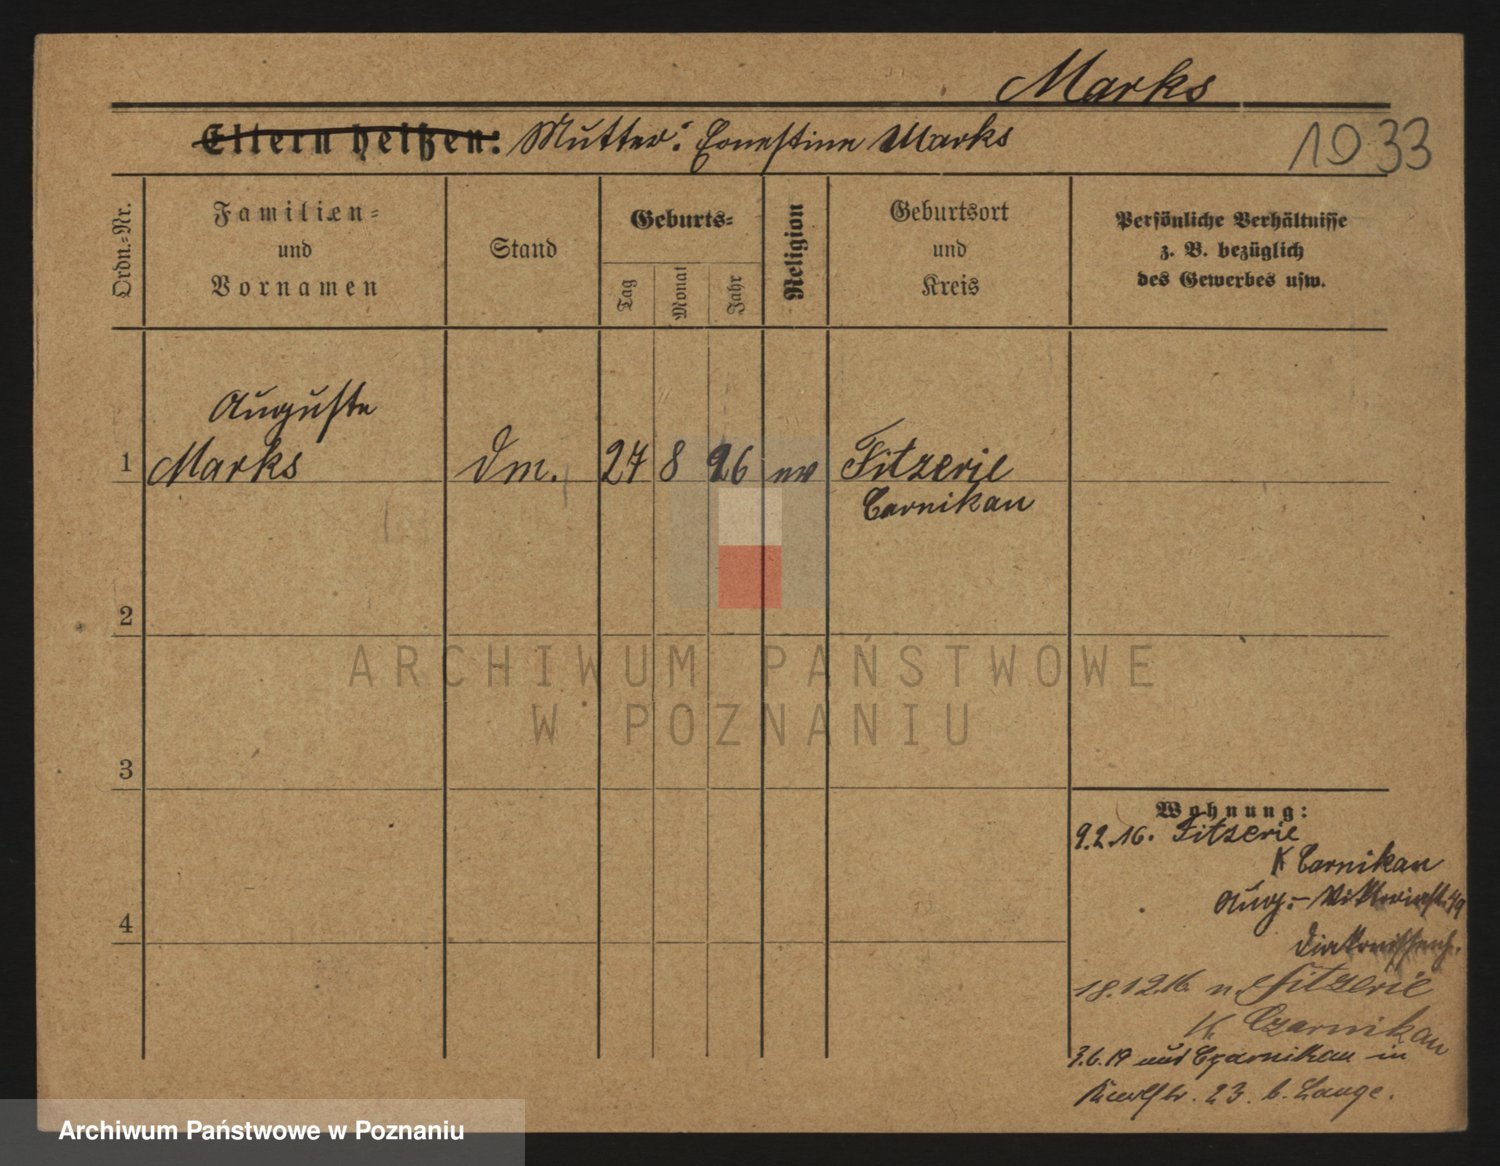 Marks
Eltern heißen: Mutter: Ernestine Marks
1933
Ordn.-Nr.
Familien-
und
Vornamen
Stand
Geburts-
Tag
Monat
Jahr
Religion
Geburtsort
und
Kreis
Persönliche Verhältnisse
z. B. bezüglich
des Gewerbes usw.
Auguste
1 Marks Dm. 27 8 96 ev Fitzerie
Czarnikau
2
ARCHIWUM PAŃSTWOWE
W POZNANIU
3
Wohnung:
9.2.16. Fitzerie
K Czarnikau
Aug.- Viktoriastr. 49
Diakonissenh.
18.12.16. n. Fitzerie
K. Czarnikau
4
3.6.19 aus Czarnikau in
23. b. Lange.
Archiwum Państwowe w Poznaniu